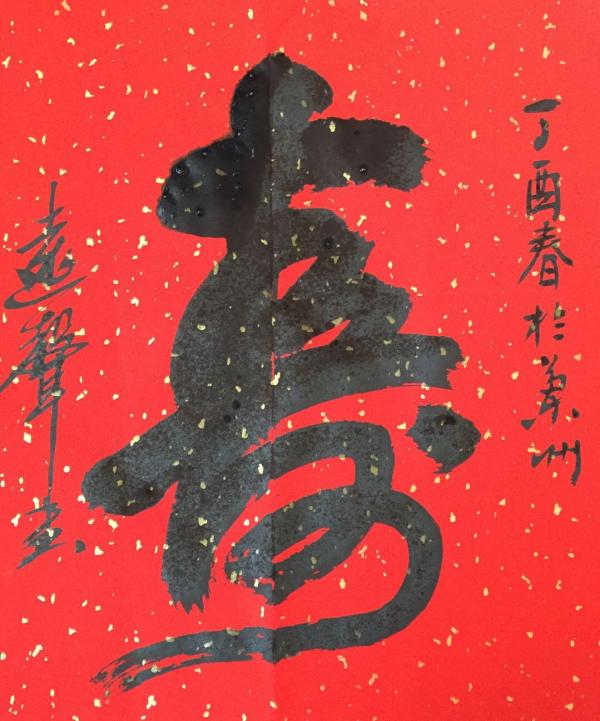 丁酉春於兰州
壽
遠聲書